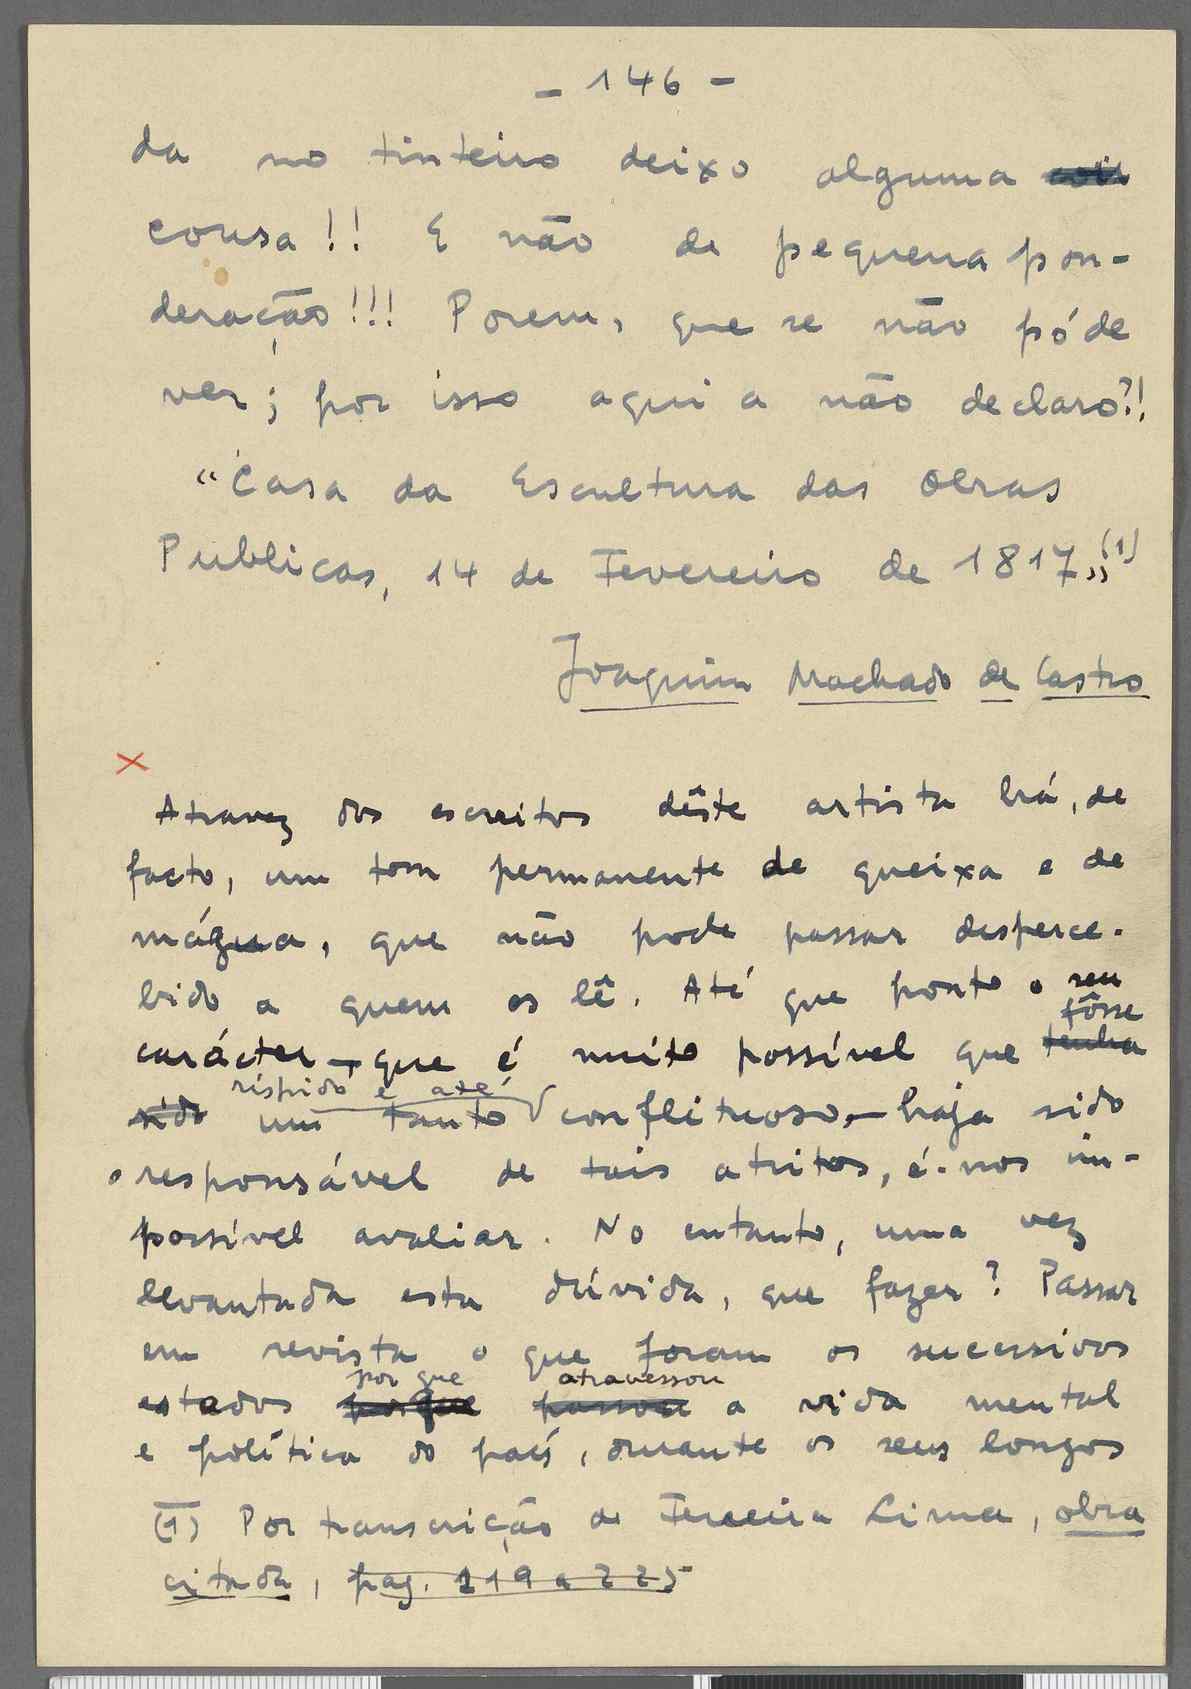 - 146 -
da no tinteiro deixo alguma
cousa!! E não de pequena pon-
deração!!! Porem, que se não póde
ver; por isso aqui a não declaro?!
"Casa da Escultura das Obras
Publicas, 14 de Fevereiro de 1817„(1)
Joaquim Machado de Castro
×
Atravez dos escritos dêste artista há, de
facto, um tom permanente de queixa e de
mágua, que não pode passar desperce-
bido a quem os lê. Até que ponto o seu
fôsse
carácter — que é muito possível que tenha
ríspido e até
sido um tanto conflituoso, — haja sido
o responsável de tais atritos, é-nos im-
possível avaliar. No entanto, uma vez
levantada esta dúvida, que fazer? Passar
em revista o que foram os sucessivos
por que atravessou
estados porque passou a vida mental
e política do país, durante os seus longos
(1) Por transcrição de Ferreira Lima, obra
citada, pag. 219 a 225